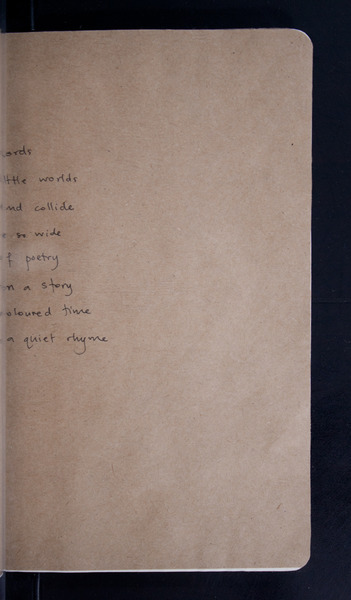 ords
ittle worlds
and collide
so wide
of poetry
in a story
coloured time
a quiet rhyme